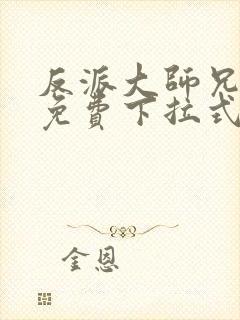 反派大师兄
免費下拉式
金恩